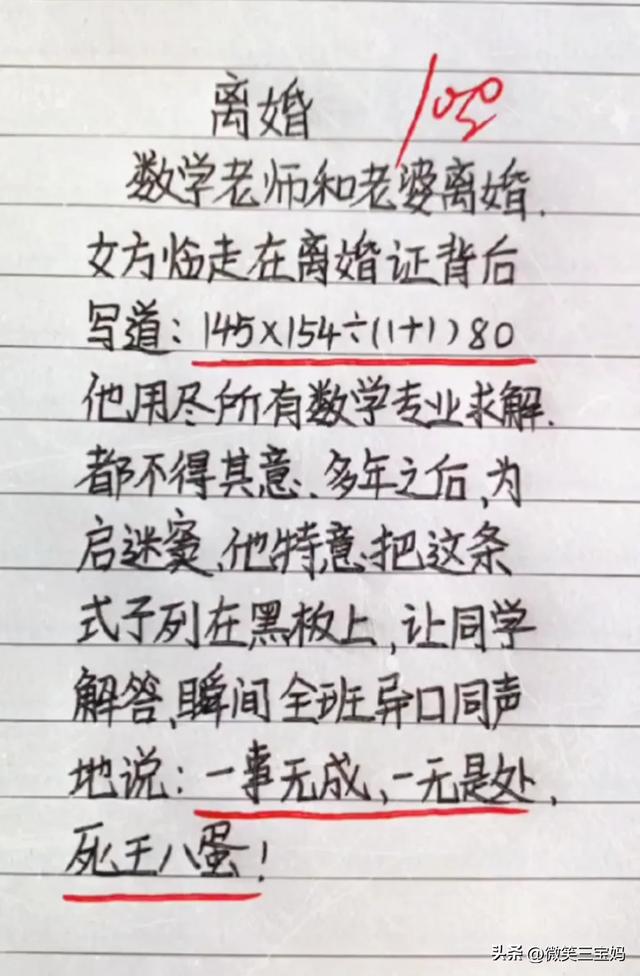 离婚 100
数学老师和老婆离婚.
女方临走在离婚证背后
写道：145×154÷(1+1)80
他用尽所有数学专业求解.
都不得其意、多年之后,为
启迷窦,他特意把这条
式子列在黑板上,让同学
解答,瞬间全班异口同声
地说：一事无成,一无是处,
死王八蛋！
头条 @微笑三宝妈